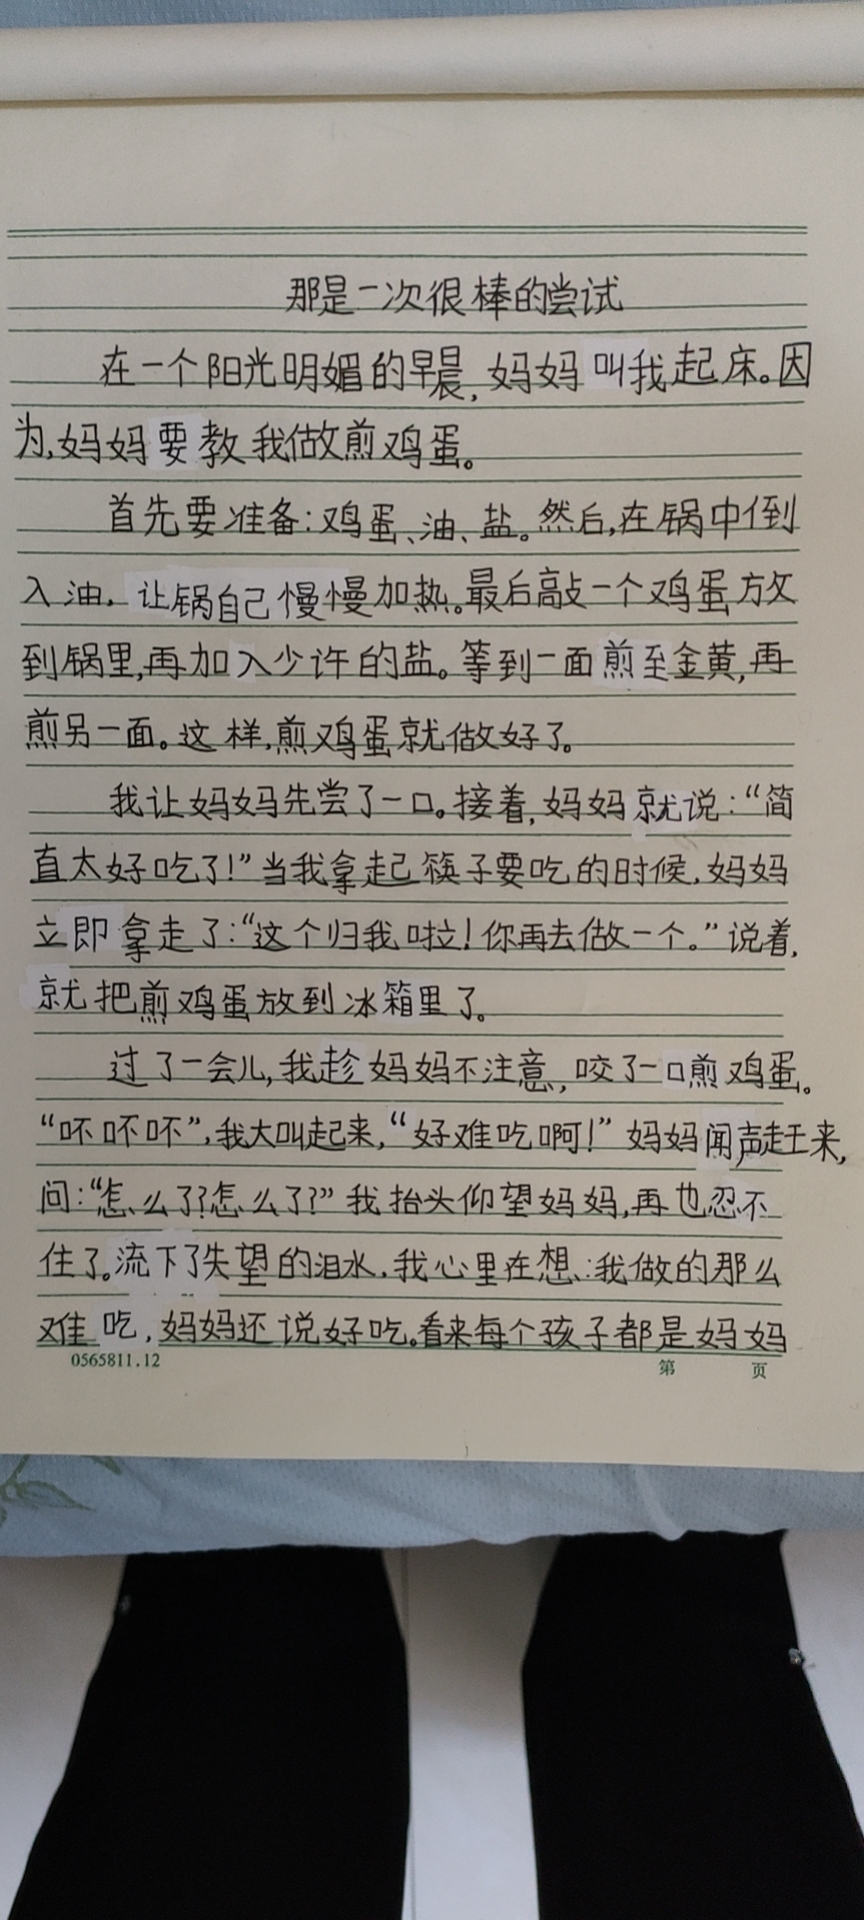 那是一次很棒的尝试
在一个阳光明媚的早晨,妈妈叫我起床。因
为,妈妈要教我做煎鸡蛋。
首先要准备:鸡蛋、油、盐。然后,在锅中倒
入油,让锅自己慢慢加热。最后敲一个鸡蛋放
到锅里,再加入少许的盐。等到一面煎至金黄,再
煎另一面。这样,煎鸡蛋就做好了。
我让妈妈先尝了一口。接着,妈妈就说:“简
直太好吃了!”当我拿起筷子要吃的时候,妈妈
立即拿走了:“这个归我啦!你再去做一个。”说着,
就把煎鸡蛋放到冰箱里了。
过了一会儿,我趁妈妈不注意,咬了一口煎鸡蛋。
“呸呸呸”,我大叫起来,“好难吃啊!”妈妈闻声赶来,
问:“怎么了?怎么了?”我抬头仰望妈妈,再也忍不
住了。流下了失望的泪水,我心里在想:我做的那么
难吃,妈妈还说好吃。看来每个孩子都是妈妈
0565811.12 第 页